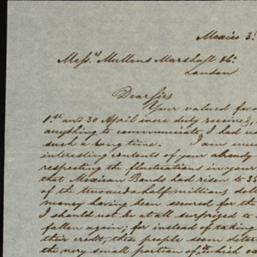 Mexico 3
Mess.rs Mullens Marshall & Co.
London
Dear Sirs
Your valued fav
1st and 30 April were duly received,
anything to communicate, I had no
such a long time. I am muc
interesting contents of your already
respecting the fluctuations in your
that Mexican Bonds had risen to 35
of the two and a half millions doll
money having been secured for the
I should not be at all surprised to
fallen again; for instead of taking
their credit, these people seem deter
the very small portion of it which